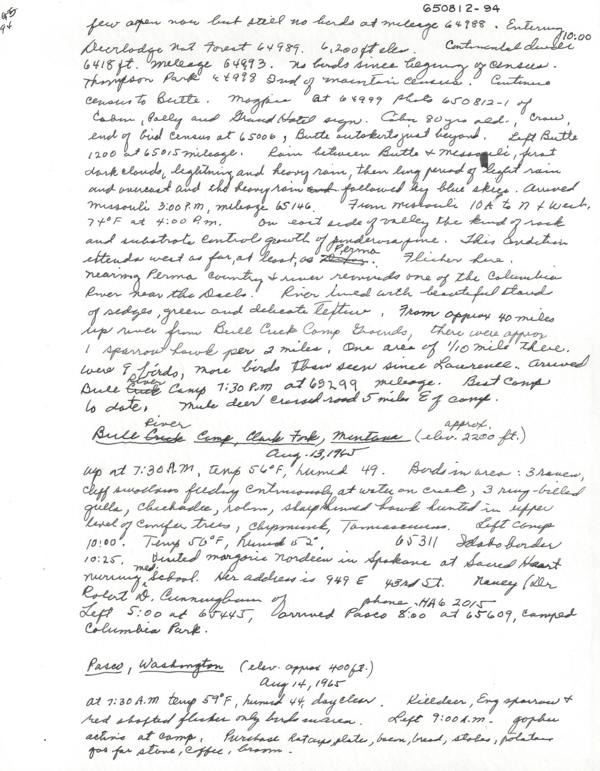 650812-94
few open now but still no birds at mileage 64988. Entering 10:00
Deerlodge Nat Forest 64989. 6,200 ft elev. Continental divide
6418 ft. mileage 64993. No birds since begining of census.
Thompson Park 64998 End of mountain census. Continue
census to Butte. Magpie at 64999 Photo 650812-1 of
Cabin, Polly and Grand Hotel sign. Cabin 80 yrs old. Crow,
end of bird census at 65006, Butte just beyond. Left Butte
1200 at 65015 mileage. Rain between Butte & Missouli, first
dark clouds, lightning and heavy rain, then long period of light rain
and overcast and the heavy rain followed by blue skies. Arrived
Missouli 3:00 P.M, mileage 65146. From Missouli 10A to N & West.
74°F at 4:00 P.m. On east side of valley the kind of rock
and substrate control growth of ponderosa pine. This condition
extends west as far, at least, as Perma. Flicker here.
nearing Perma country & river reminds one of the Columbia
River near the Dalls. River lined with beautiful stand
of sedges, green and delicate texture. From approx 40 miles
up river from Bull Creek Camp Grounds, there were approx
1 sparrow hawk per 2 miles. One area of 1/10 mile there.
were 9 birds, more birds than seen since Lawrence. Arrived
Bull River Camp 7:30 P.M at 65299 mileage. Best camp
to date. Mule deer crossed road 5 miles E of camp.
Bull River Camp, Clark Fork, Montana (elev. approx. 2200 ft.)
Aug. 13, 1965
up at 7:30 A.M, temp 56°F, humid 49. Birds in area: 3 raven,
cliff swallows feeding continuously at water on creek, 3 ring-billed
gulls, chickadee, robin, sharpshinned hawk hunted in upper
level of conifer trees, chipmunk, Tamiasciurus. Left camp
10:00. Temp 56°F, humid 52. 65311 Idaho border
10:25. Visited Margorie Nordeen in Spokane at Sacred Heart
nursing med School. Her address is 949 E 43rd St. Nancy (Dr
Robert D. Cunningham of phone HA6 2015
Left 5:00 at 65445, arrived Pasco 8:00 at 65609, camped
Columbia Park.
Pasco, Washington (elev. approx 400 ft.)
Aug 14, 1965
at 7:30 A.M temp 59°F, humid 44, day clear. Killdeer, Eng sparrow &
red shafted flicker only birds in area. Left 9:00 A.m. gopher
active at camp. Purchase plate, bacon, bread, potatoes
gas for stove, coffee, broom.